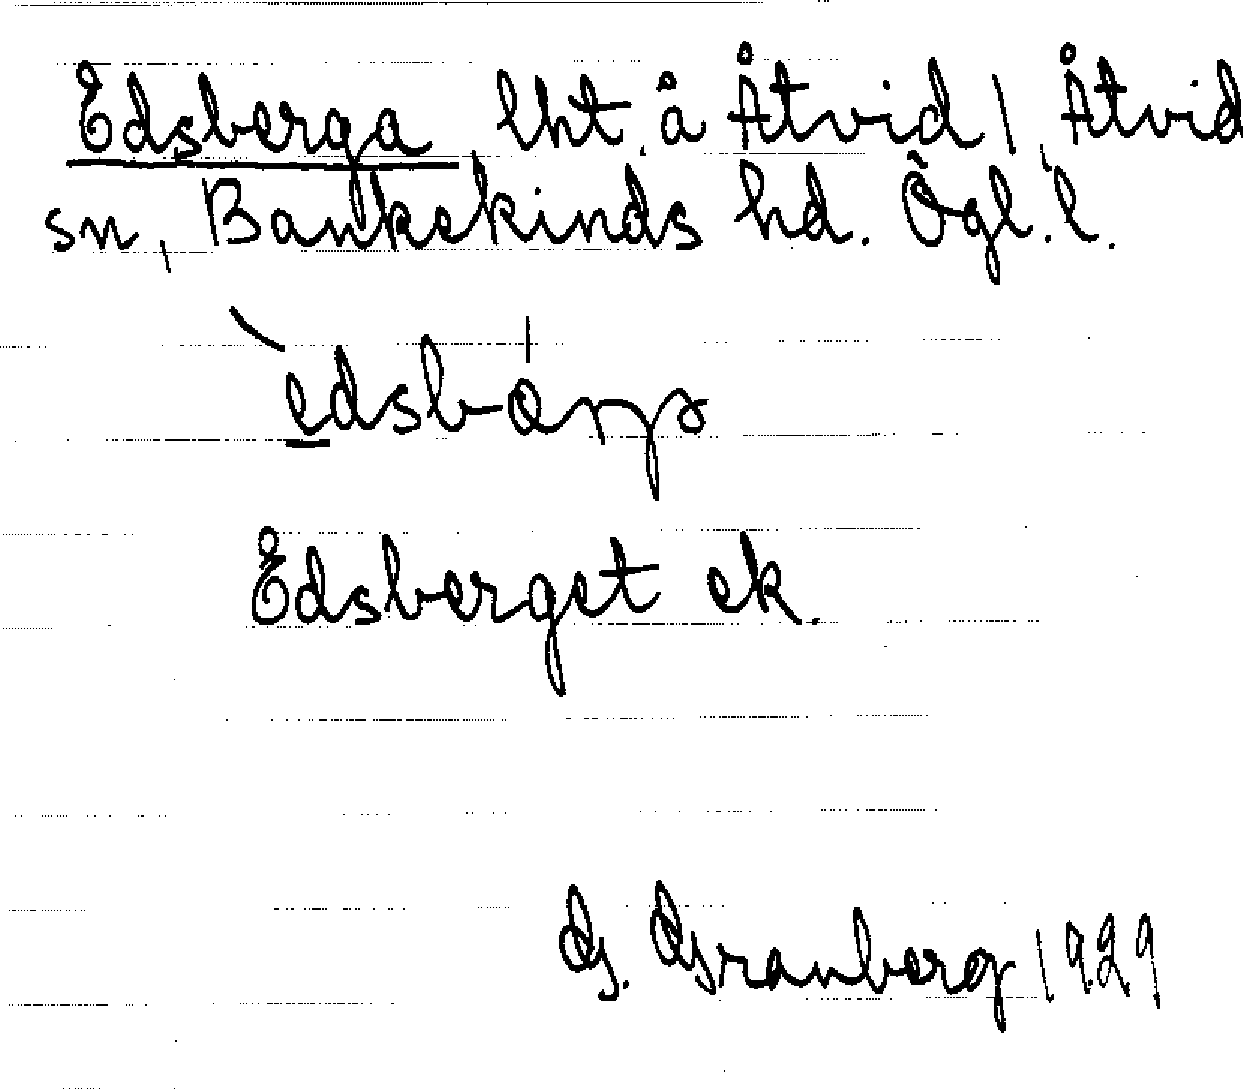 Edsberga lht å Åtvid 1, Åtvid
sn, Bankekinds hd. Ögl. l.
Edsberget ek.
G. Granberg 1929